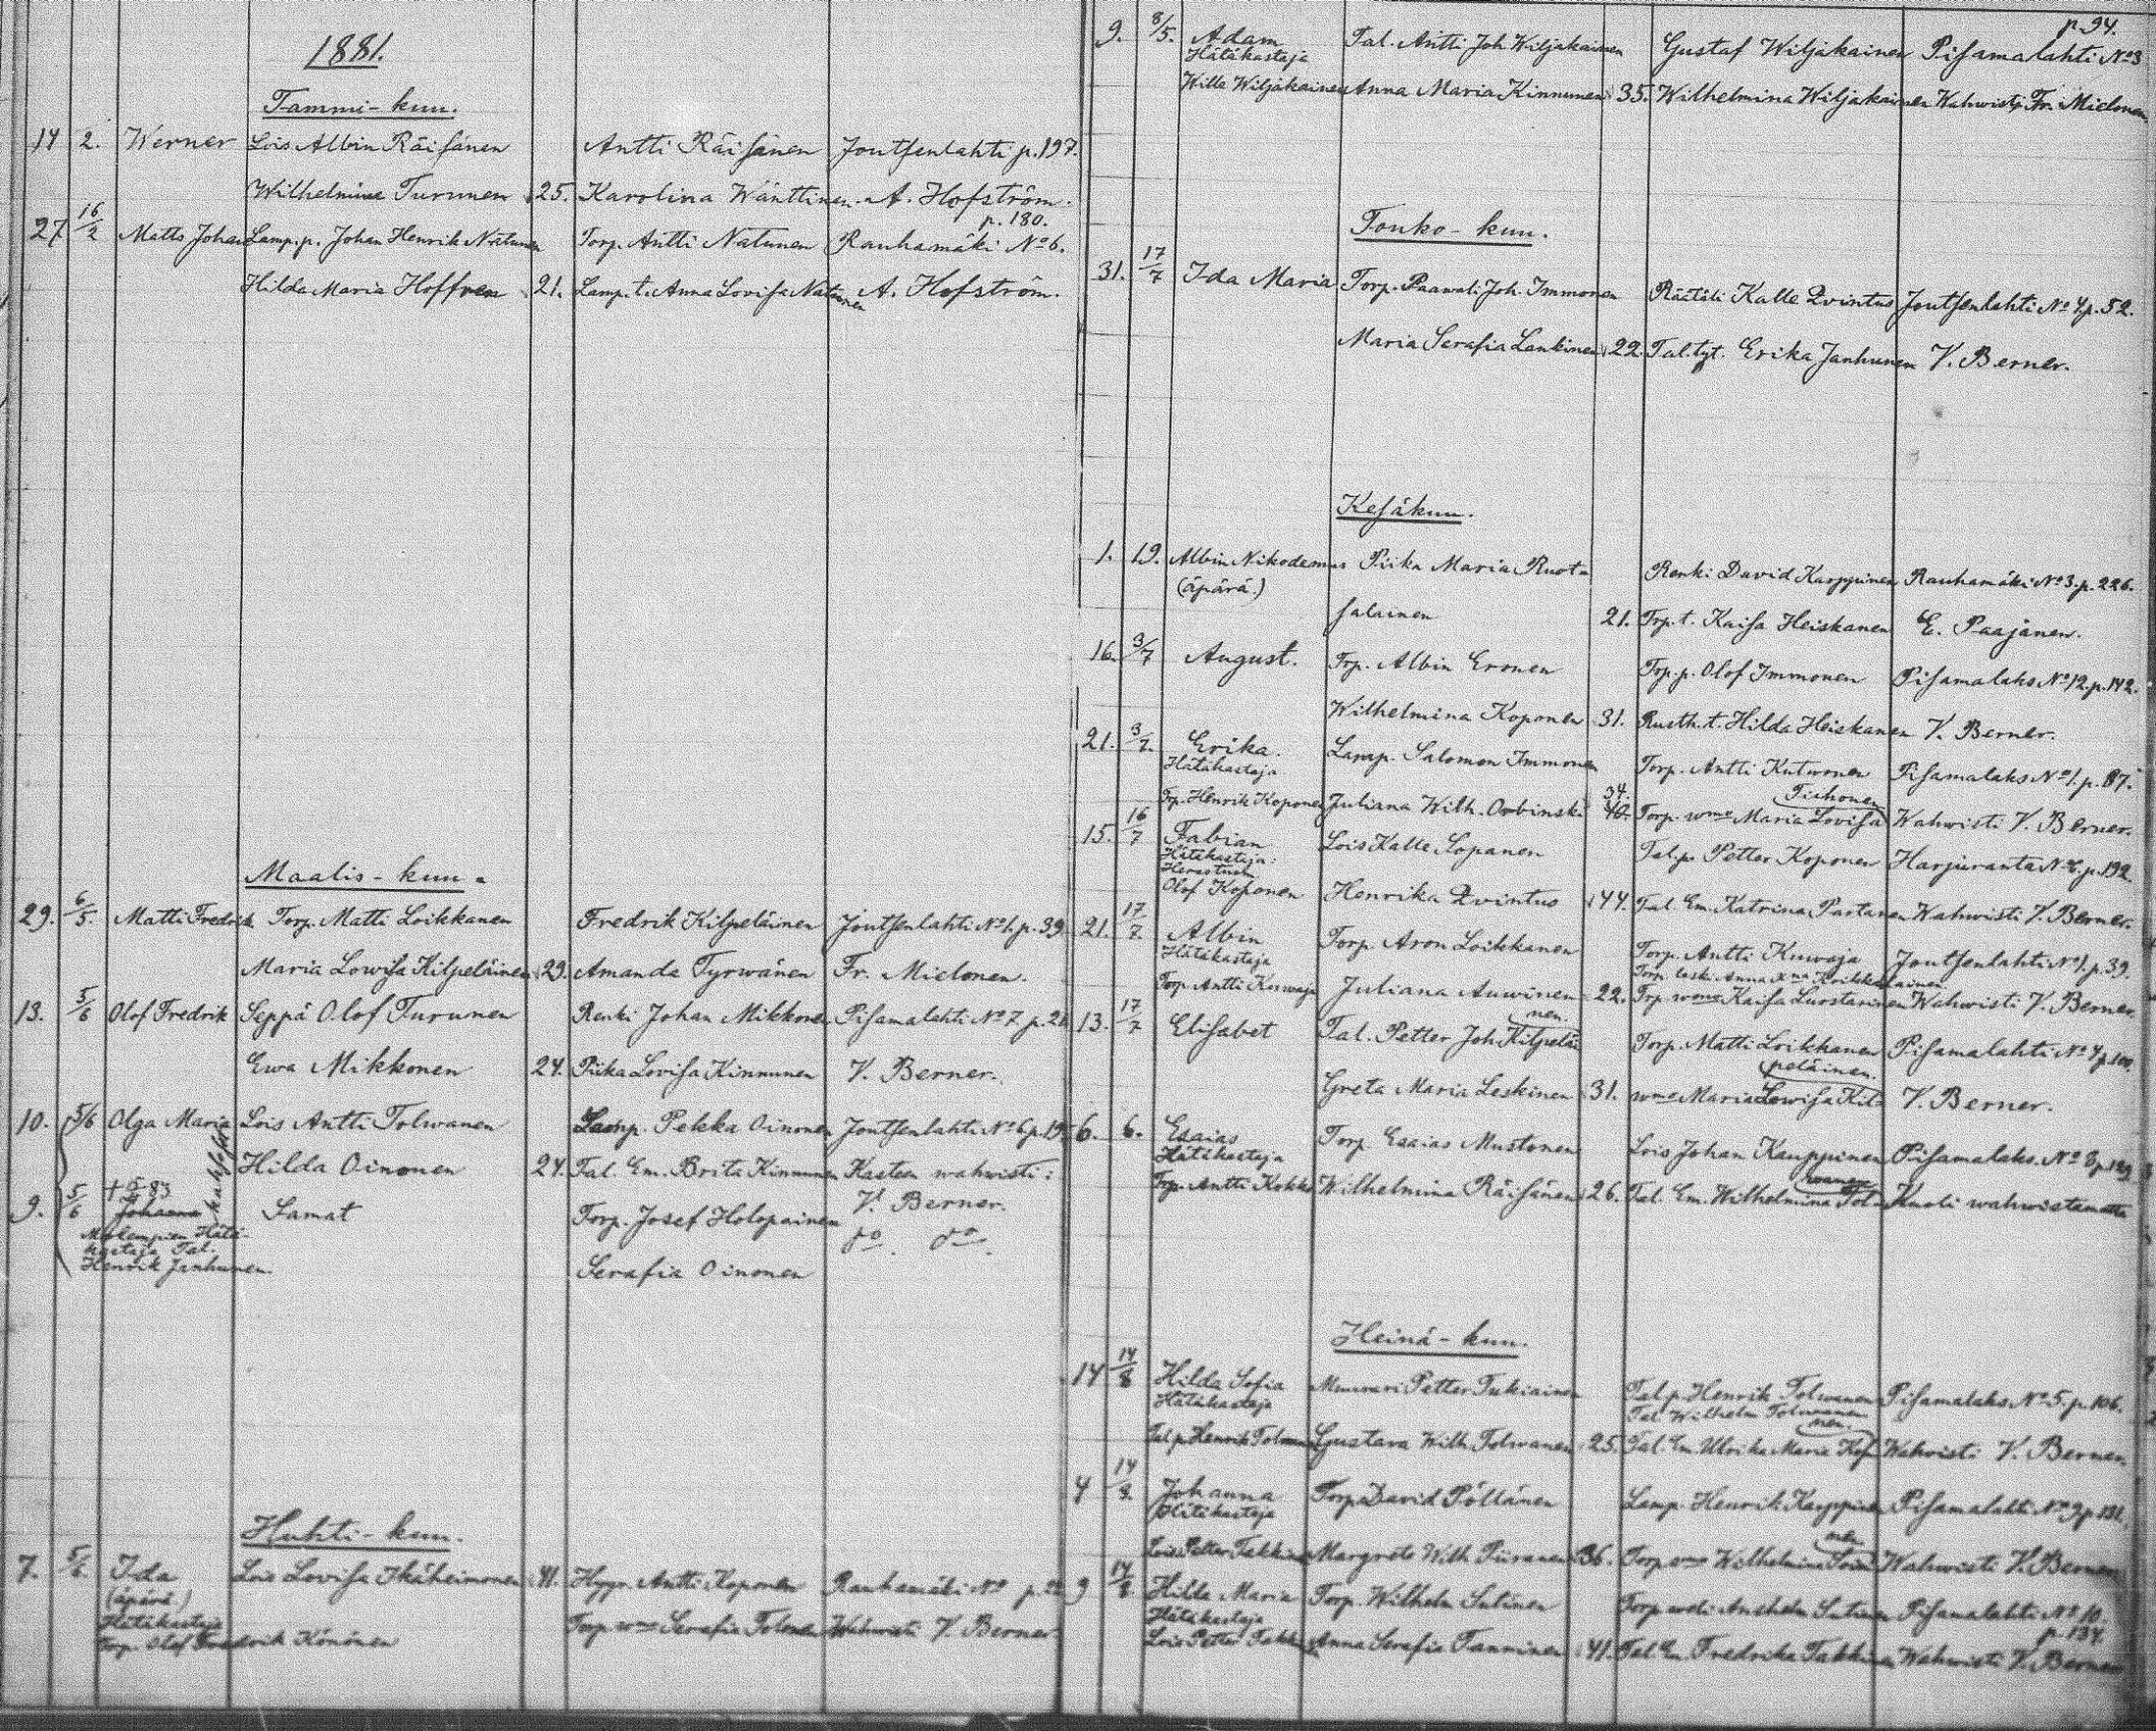 1881.
Tammi-kuu.
14 2. Werner Lois Albin Räisänen Antti Räisänen Joutsenlahti p.197.
Wilhelmina Turunen 25. Karolina Wänttinen A. Hofström.
27 16/2 Matts Johan Lamp.p. Johan Henrik Natunen Torp. Antti Natunen Rauhamäki No 6. p. 180.
Hilda Maria Hoffren 21. Lamp.t. Anna Lovisa Natunen A. Hofström.
Maalis-kuu.
29. 6/5 Matti Fredrik Torp. Matti Loikkanen Fredrik Kilpeläinen Joutsenlahti No 1. p. 39
Maria Lowisa Kilpeläinen 29. Amanda Tyrwänen Fr. Mielonen.
13. 5/6 Olof Fredrik Seppä Olof Turunen Renki Johan Mikkonen Pisamalahti No 7 p.
Ewa Mikkonen 24. Piika Lovisa Kinnunen V. Berner.
10. 5/6 Olga Maria Lois Antti Tolwanen Lamp. Pekka Oinonen Joutsenlahti No 6 p.
kaksoset Hilda Oinonen 24. Tal. Em. Brita Kinnunen Kasten wahwisti:
9. 5/6 Johanna Samat Torp. Josef Holopainen V. Berner.
Molempien Hätäkastaja Tal. Henrik Janhunen. Serafia Oinonen do. do.
Huhti-kuu.
7. 5/6. Ida Lois Lovisa Ikäheimonen 41. Antti Koponen Rauhamäki No p.
(äpärä)
Hätäkastaja Torp. wmo Serafia Tolonen Wahwisti V. Berner
Torp. Olof Fredrik Könönen
9. 8/5. Adam Tal. Antti Joh. Wiljakainen Gustaf Wiljakainen Pisamalahti No 3 p. 94.
Hätäkastaja
Wille Wiljakainen Anna Maria Kinnunen 35. Wilhelmina Wiljakainen Wahwisti Fr. Mielonen.
Touko-kuu.
31. 17/7 Ida Maria Torp. Paawali Joh. Immonen Räätäli Kalle Qvintus Joutsenlahti No 4. p. 52.
Maria Serafia Lankinen 22. Tal. tyt. Erika Janhunen V. Berner.
Kesäkuu.
1. 19. Albin Nikodemus Piika Maria Ruot- Renki David Karppinen Rauhamäki No 3. p. 226.
(äpärä.)
salainen 21. Trp.t. Kaisa Heiskanen E. Paajanen.
16. 3/7 August. Trp. Albin Eronen Trp. p. Olof Immonen Pisamalaks No 12. p. 142.
Wilhelmina Koponen 31. Rusth.t. Hilda Heiskanen V. Berner.
21. 3/7. Erika. Lamp. Salomon Immonen Torp. Antti Kutwonen Pisamalaks No 1. p. 87.
Hätäkastaja
Trp. Henrik Koponen Juliana Wilh. Orbinski 34. 40. Torp. wmo Maria Lovisa Tiihonen Wahwisti V. Berner.
15. 16/7 Fabian Lois Kalle Sopanen Tal.p. Petter Koponen Harjuranta No 6. p. 192
Hätäkastaja:
Herastuom
Olof Koponen Henrika Qvintus 44. Tal. Em. Katrina Partanen Wahwisti V. Berner.
21. 17/7. Albin Torp. Aron Loikkanen Torp. Antti Kuwaja Joutsenlahti No 1. p. 39.
Hätäkastaja Torp. leski Anna
Torp. Antti Kuwaja Juliana Auwinen 22. Trp. wmo Kaisa Luostarinen Wahwisti V. Berner.
13. 17/7 Elisabet Tal. Petter Joh. Kilpeläinen. Torp. Matti Loikkanen Pisamalahti No 4 p. 100.
Greta Maria Leskinen 31. wmo Maria Lowisa Kilpeläinen. V. Berner.
6. 6. Esaias Torp Esaias Mustonen Lois Johan Kauppinen Pisamalaks. No 8 p.
Hätäkastaja
Trp. Antti Kokki Wilhelmina Räisänen 26. Tal. Em. Wilhelmina Tolwanen Kuoli wahwistamatta
Heinä-kuu.
14 14/8 Hilda Sofia Muurari Petter Tukiainen Tal.p. Henrik Tolwanen Pisamalaks No 5. p. 106.
Hätäkastaja Tal. Wilhelm Tolwanen
Tal p. Henrik Tolwanen Gustava Wilh. Tolwanen 25. Tal. Em. Ulrika Maria Wahwisti V. Berner.
4 14/8. Johanna Torp. David Pöllänen Lamp. Henrik Karppinen Pisamalahti No 9 p. 131.
Hätäkastaja
Lois Petter Takkinen Margreta Wilh. Piiranen 36. Torp. wmo Wilhelmina Wahwisti V. Berner
9 14/8 Hilda Maria Torp. Wilhelm Sutinen Torp. Anshelm Sutinen Pisamalahti No 10. p. 134.
Hätäkastaja
Lois Petter Takkinen Anna Serafia Tanninen 41. Tal. Em. Fredrika Takkinen Wahwisti V. Berner